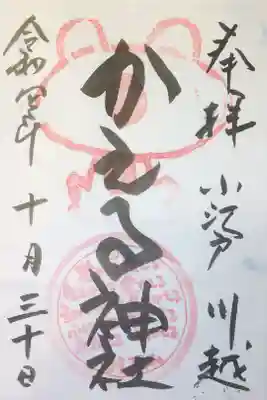 奉拝 小江戸 川越
かえる神社
令和四年 十月 三十日